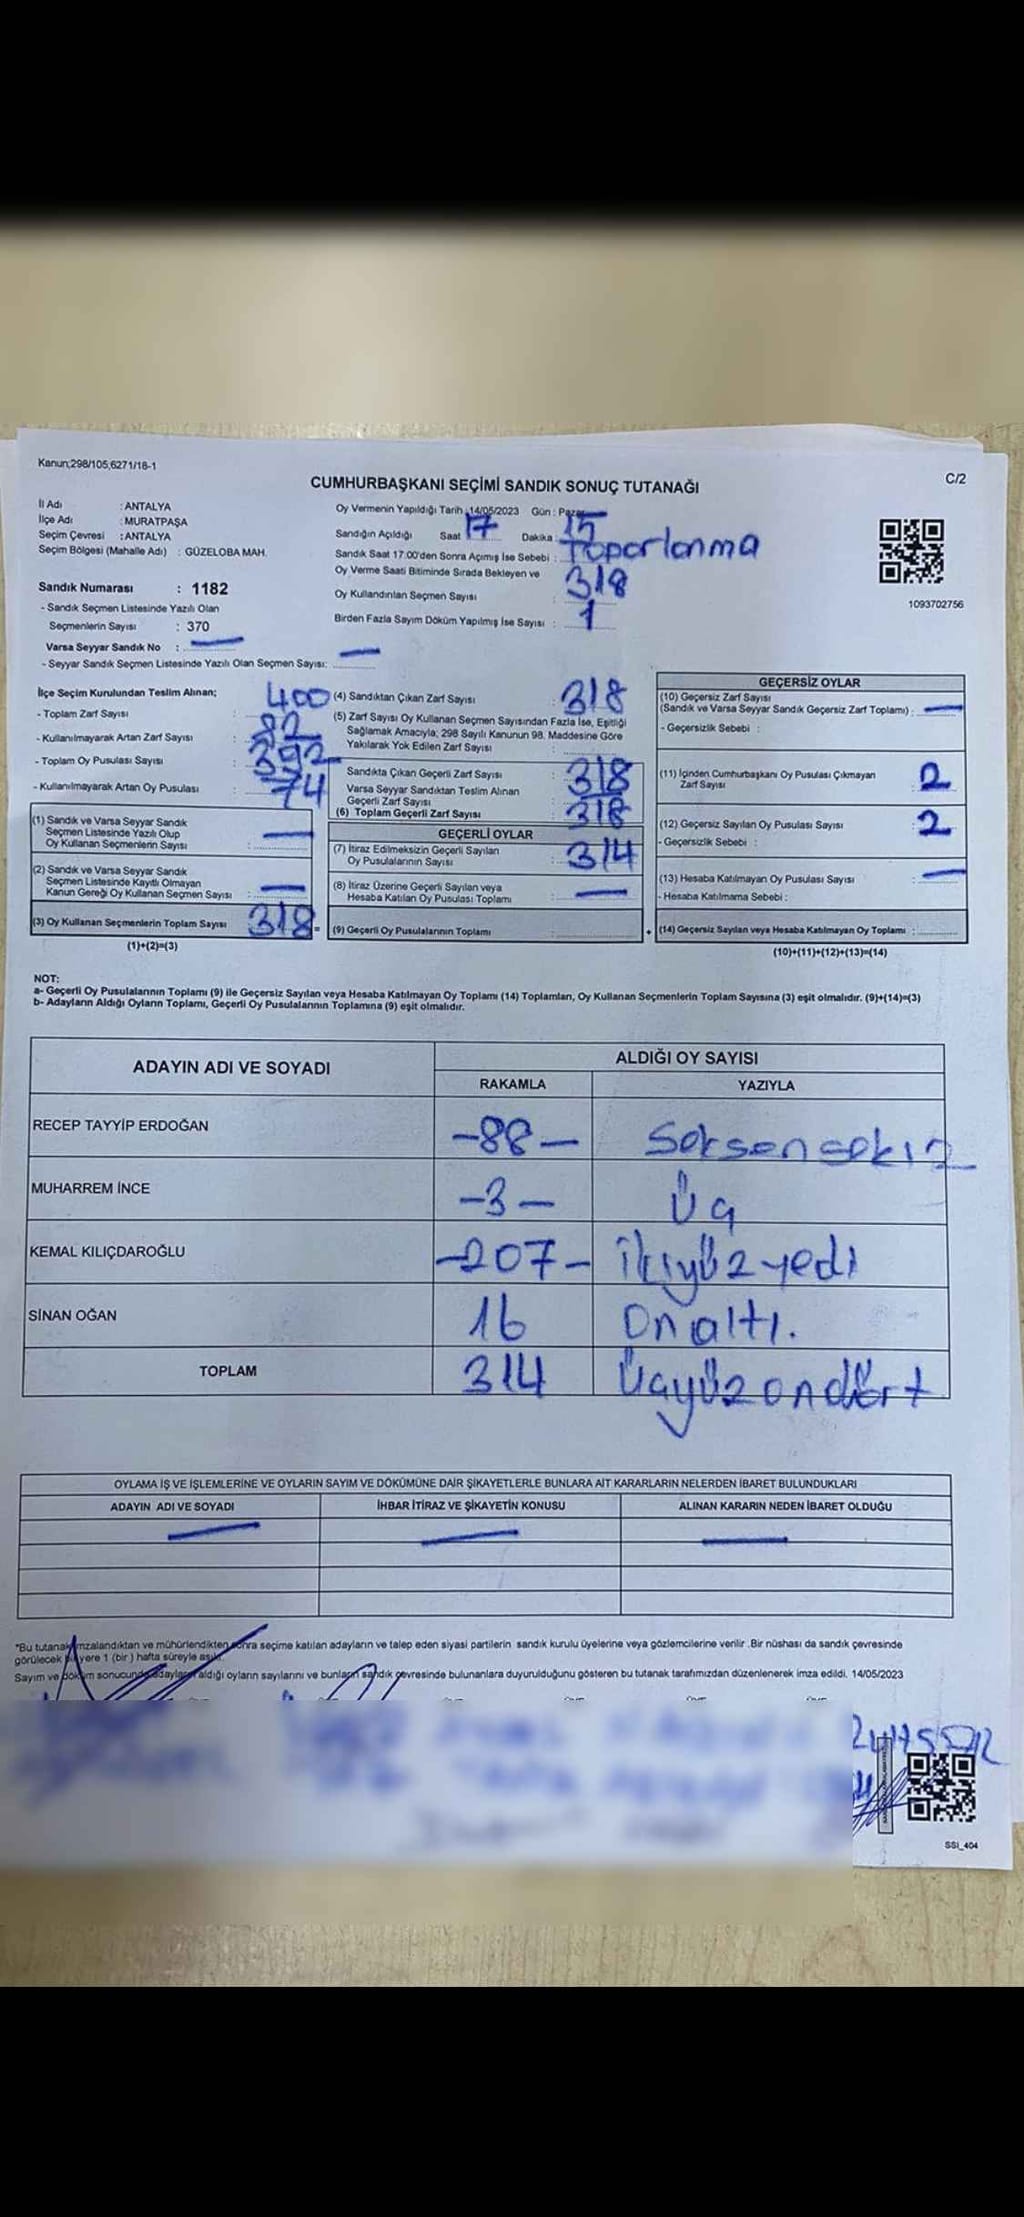 Kanun;298/105,6271/18-1
C/2
CUMHURBAŞKANI SEÇİMİ SANDIK SONUÇ TUTANAĞI
İl Adı : ANTALYA
İlçe Adı : MURATPAŞA
Seçim Çevresi : ANTALYA
Seçim Bölgesi (Mahalle Adı) : GÜZELOBA MAH.
Sandık Numarası : 1182
- Sandık Seçmen Listesinde Yazılı Olan
Seçmenlerin Sayısı : 370
Varsa Seyyar Sandık No : —
- Seyyar Sandık Seçmen Listesinde Yazılı Olan Seçmen Sayısı: —
Oy Vermenin Yapıldığı Tarih :14/05/2023 Gün : Pazar
Sandığın Açıldığı Saat 17 Dakika : 15
Sandık Saat 17:00'den Sonra Açılmış İse Sebebi : Toparlanma
Oy Verme Saati Bitiminde Sırada Bekleyen ve
Oy Kullandırılan Seçmen Sayısı : 318
Birden Fazla Sayım Döküm Yapılmış İse Sayısı : 1
1093702756
İlçe Seçim Kurulundan Teslim Alınan;
- Toplam Zarf Sayısı : 400
- Kullanılmayarak Artan Zarf Sayısı : 82
- Toplam Oy Pusulası Sayısı : 392
- Kullanılmayarak Artan Oy Pusulası : 74
(1) Sandık ve Varsa Seyyar Sandık
Seçmen Listesinde Yazılı Olup
Oy Kullanan Seçmenlerin Sayısı : —
(2) Sandık ve Varsa Seyyar Sandık
Seçmen Listesinde Kayıtlı Olmayan
Kanun Gereği Oy Kullanan Seçmen Sayısı : —
(3) Oy Kullanan Seçmenlerin Toplam Sayısı 318
(1)+(2)=(3)
(4) Sandıktan Çıkan Zarf Sayısı : 318
(5) Zarf Sayısı Oy Kullanan Seçmen Sayısından Fazla İse, Eşitliği
Sağlamak Amacıyla; 298 Sayılı Kanunun 98. Maddesine Göre
Yakılarak Yok Edilen Zarf Sayısı :
Sandıkta Çıkan Geçerli Zarf Sayısı : 318
Varsa Seyyar Sandıktan Teslim Alınan
Geçerli Zarf Sayısı :
(6) Toplam Geçerli Zarf Sayısı : 318
GEÇERLİ OYLAR
(7) İtiraz Edilmeksizin Geçerli Sayılan
Oy Pusulalarının Sayısı : 314
(8) İtiraz Üzerine Geçerli Sayılan veya
Hesaba Katılan Oy Pusulası Toplamı : —
=
(9) Geçerli Oy Pusulalarının Toplamı :
+
GEÇERSİZ OYLAR
(10) Geçersiz Zarf Sayısı
(Sandık ve Varsa Seyyar Sandık Geçersiz Zarf Toplamı) : —
- Geçersizlik Sebebi :
(11) İçinden Cumhurbaşkanı Oy Pusulası Çıkmayan
Zarf Sayısı : 2
(12) Geçersiz Sayılan Oy Pusulası Sayısı : 2
- Geçersizlik Sebebi :
(13) Hesaba Katılmayan Oy Pusulası Sayısı : —
- Hesaba Katılmama Sebebi :
(14) Geçersiz Sayılan veya Hesaba Katılmayan Oy Toplamı :
(10)+(11)+(12)+(13)=(14)
NOT:
a- Geçerli Oy Pusulalarının Toplamı (9) ile Geçersiz Sayılan veya Hesaba Katılmayan Oy Toplamı (14) Toplamları, Oy Kullanan Seçmenlerin Toplam Sayısına (3) eşit olmalıdır. (9)+(14)=(3)
b- Adayların Aldığı Oyların Toplamı, Geçerli Oy Pusulalarının Toplamına (9) eşit olmalıdır.
ADAYIN ADI VE SOYADI ALDIĞI OY SAYISI
RAKAMLA YAZIYLA
RECEP TAYYİP ERDOĞAN -88- Seksensekiz
MUHARREM İNCE -3- Üç
KEMAL KILIÇDAROĞLU -207- ikiyüzyedi
SİNAN OĞAN 16 Onaltı.
TOPLAM 314 Üçyüzondört
OYLAMA İŞ VE İŞLEMLERİNE VE OYLARIN SAYIM VE DÖKÜMÜNE DAİR ŞİKAYETLERLE BUNLARA AİT KARARLARIN NELERDEN İBARET BULUNDUKLARI
ADAYIN ADI VE SOYADI İHBAR İTİRAZ VE ŞİKAYETİN KONUSU ALINAN KARARIN NEDEN İBARET OLDUĞU
— — —
*Bu tutanak imzalandıktan ve mühürlendikten sonra seçime katılan adayların ve talep eden siyasi partilerin sandık kurulu üyelerine veya gözlemcilerine verilir .Bir nüshası da sandık çevresinde
görülecek bir yere 1 (bir ) hafta süreyle asılır.
Sayım ve döküm sonucunda adayların aldığı oyların sayılarını ve bunların sandık çevresinde bulunanlara duyurulduğunu gösteren bu tutanak tarafımızdan düzenlenerek imza edildi. 14/05/2023
SSI_404